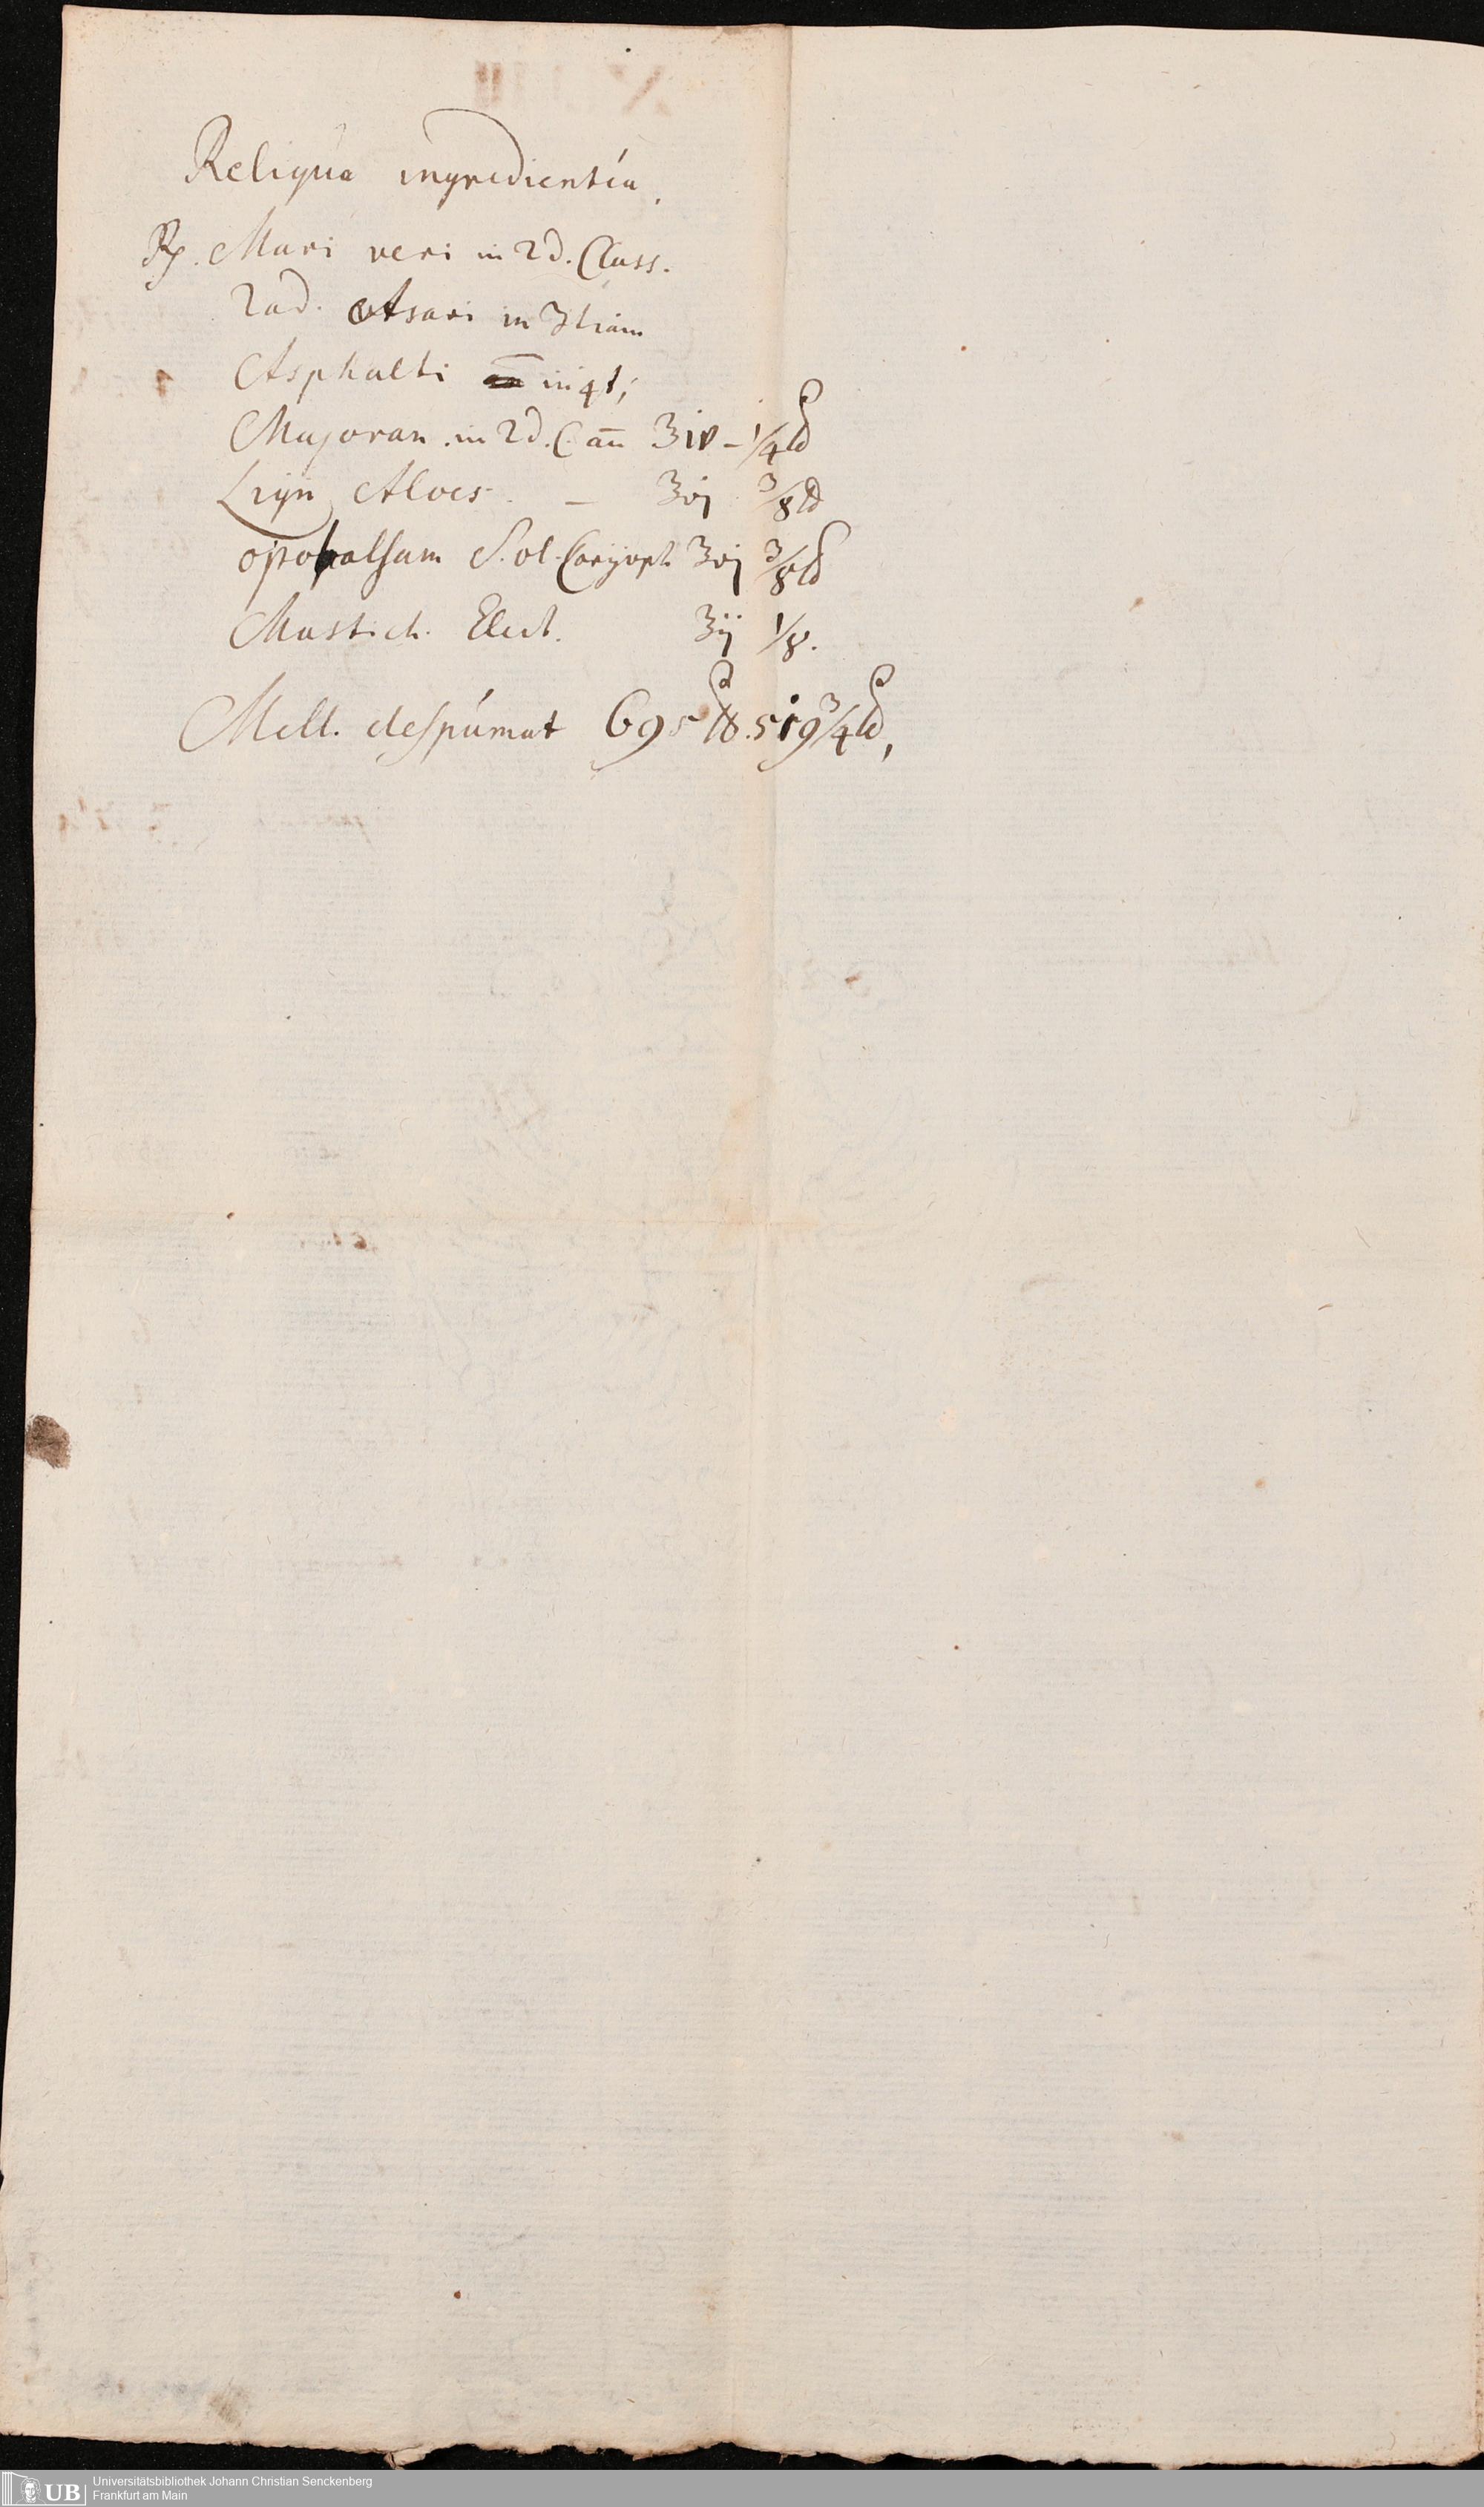 Reliqúa ingredientia,
℞. Mari veri in 2d. Class.
Rad. Asari in 3tiam
Asphalti in 4t;
Majoran. in 2d. C. an̄ ʒiv – 1/4 ℔
Lign Aloes. – ʒvj 3/8 ℔
opobalsam S. ol. Caryoph ʒvj 3/8 ℔
Mastich. Elect. ʒij 1/8.
Mell. despúmat 695 ℔. 519 3/4 ℔,
Universitätsbibliothek Johann Christian Senckenberg
UB Frankfurt am Main